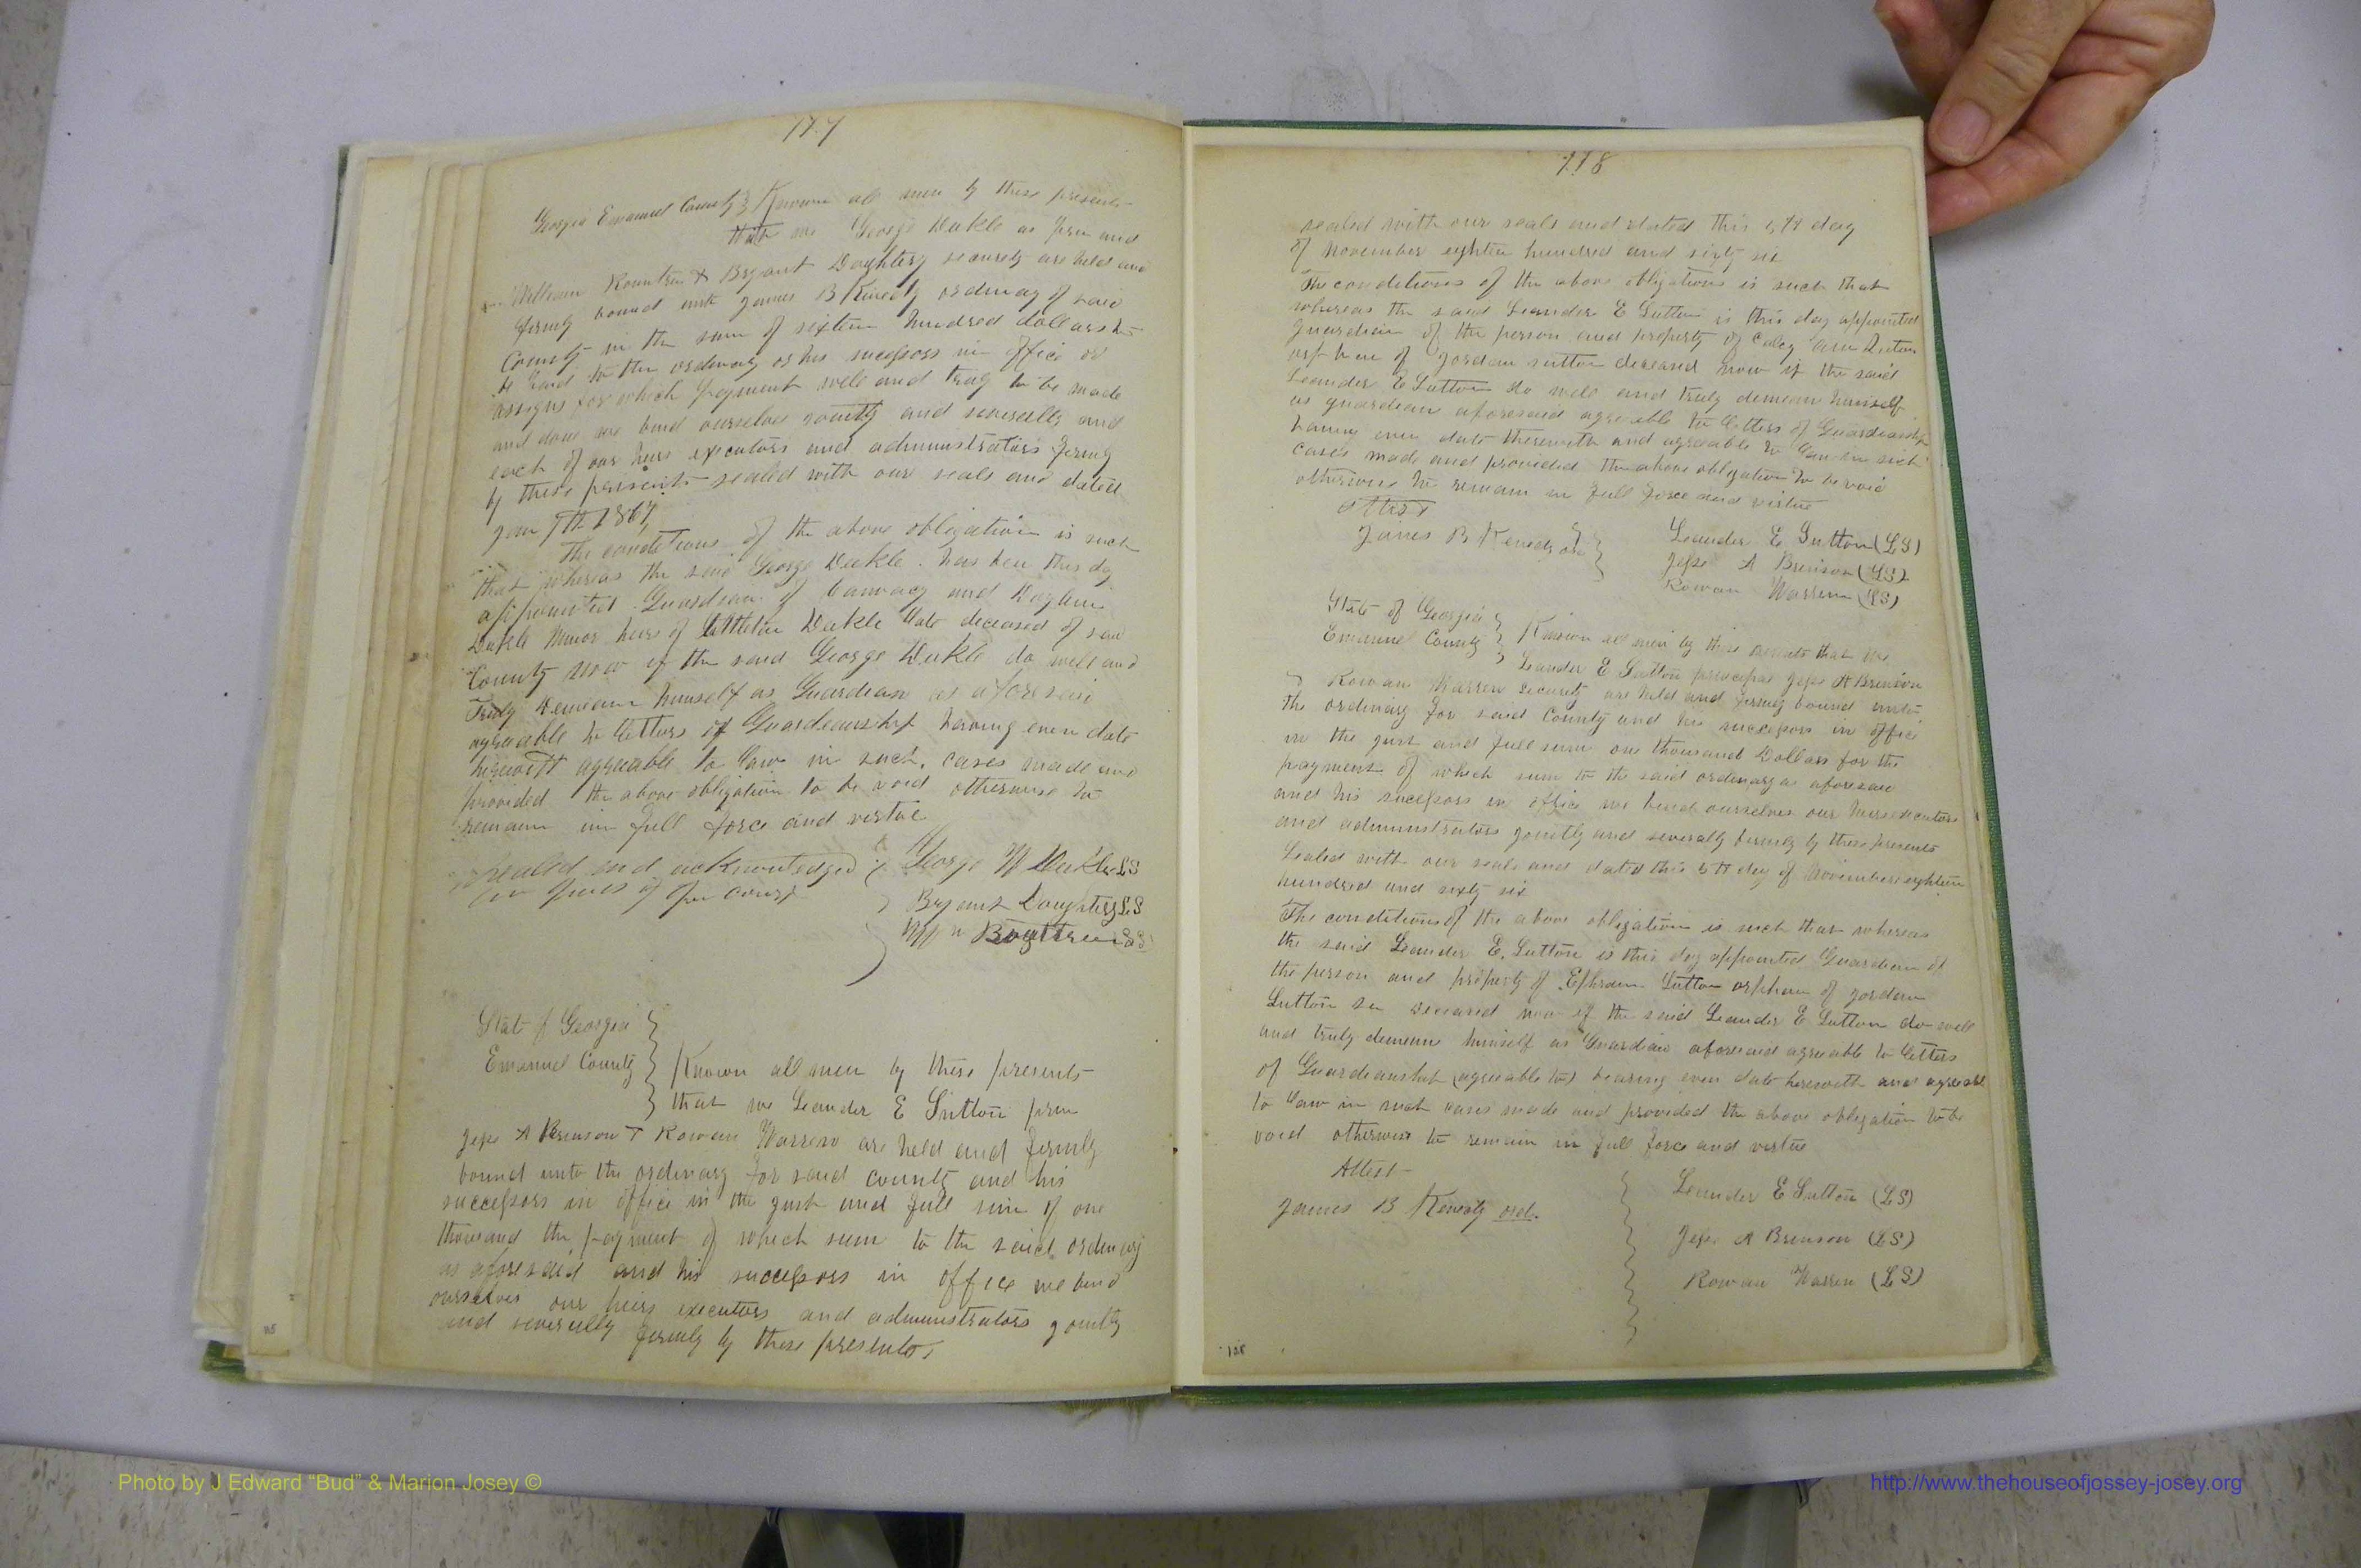 177
Georgia Emanuel County Known all men by these presents
that we George Deekle as prin and
William Rountree & Bryant Doughtery security are held and
firmly bound unto James B Kinedy ordinary of said
County in the sum of sixteen hundred dollars to
be paid to the ordinary or his sucessors in office or
assigns for which payment well and truly to be made
and done we bind ourselves jointly and severally and
each of our heirs executors and administrators firmly
by these presents sealed with our seals and dated
Jan 7th 1867
The conditions of the above obligation is such
that whereas the said George Deekle has been this day
appointed Guardian of and
Deekle minor heirs of Littleton Deekle late deceased of said
County now if the said George Deekle do well and
Truly demean himself as Guardian as aforesaid
agreeable to letters of Guardianship having even date
herewith agreeable to law in such cases made and
provided the above obligation to be void otherwise to
remain in full force and virtue
Sealed and acknowledged George W Deekle LS
in of court
Bryant Doughtery LS
Wm LS
State of Georgia
Emanuel County Known all men by these presents
that we Leander E Sutton prin
Jesse A Brinson & Rowan Warren are held and firmly
bound unto the ordinary for said county and his
successors in office in the just and full sum of one
thousand the payment of which sum to the said ordinary
as aforesaid and his successors in office we bind
ourselves our heirs executors and administrators jointly
and severally firmly by these presents
178
sealed with our seals and dated this 5th day
of November eighteen hundred and sixty six
The conditions of the above obligations is such that
whereas the said Leander E Sutton is this day appointed
guardian of the person and property of Ann Sutton
orphan of Jordan Sutton deceased now if the said
Leander E Sutton do well and truly demean himself
as guardian aforesaid agreeable to letters of Guardianship
having even date therewith and agreeable to law in such
cases made and provided the above obligation to be void
otherwise to remain in full force and virtue
Attest
James B Kenedy ord Leander E Sutton (LS)
Jesse A Brinson (LS)
Rowan Warren (LS)
State of Georgia
Emanuel County Known all men by these presents that we
Leander E Sutton principal Jesse A Brinson
Rowan Warren security are held and firmly bound unto
the ordinary for said County and his successors in office
in the just and full sum one thousand Dollars for the
payment of which sum to the said ordinary as aforesaid
and his successors in office we bind ourselves our heirs executors
and administrators jointly and severally firmly by these presents
Sealed with our seals and dated this 5th day of November eighteen
hundred and sixty six
The conditions of the above obligation is such that whereas
the said Leander E. Sutton is this day appointed Guardian of
the person and property of Ephraim Sutton orphan of Jordan
Sutton Sen deceased now if the said Leander E Sutton do well
and truly demean himself as Guardian aforesaid agreeable to letters
of Guardianship (agreeable to) bearing even date herewith and agreeabl
to law in such cases made and provided the above obligation to be
void otherwise to remain in full force and virtue
Attest
James B Kenedy ord. Leander E Sutton (LS)
Jesse A Brinson (LS)
Rowan Warren (LS)
Photo by J Edward “Bud” & Marion Josey ©
http://www.thehouseofjossey-josey.org